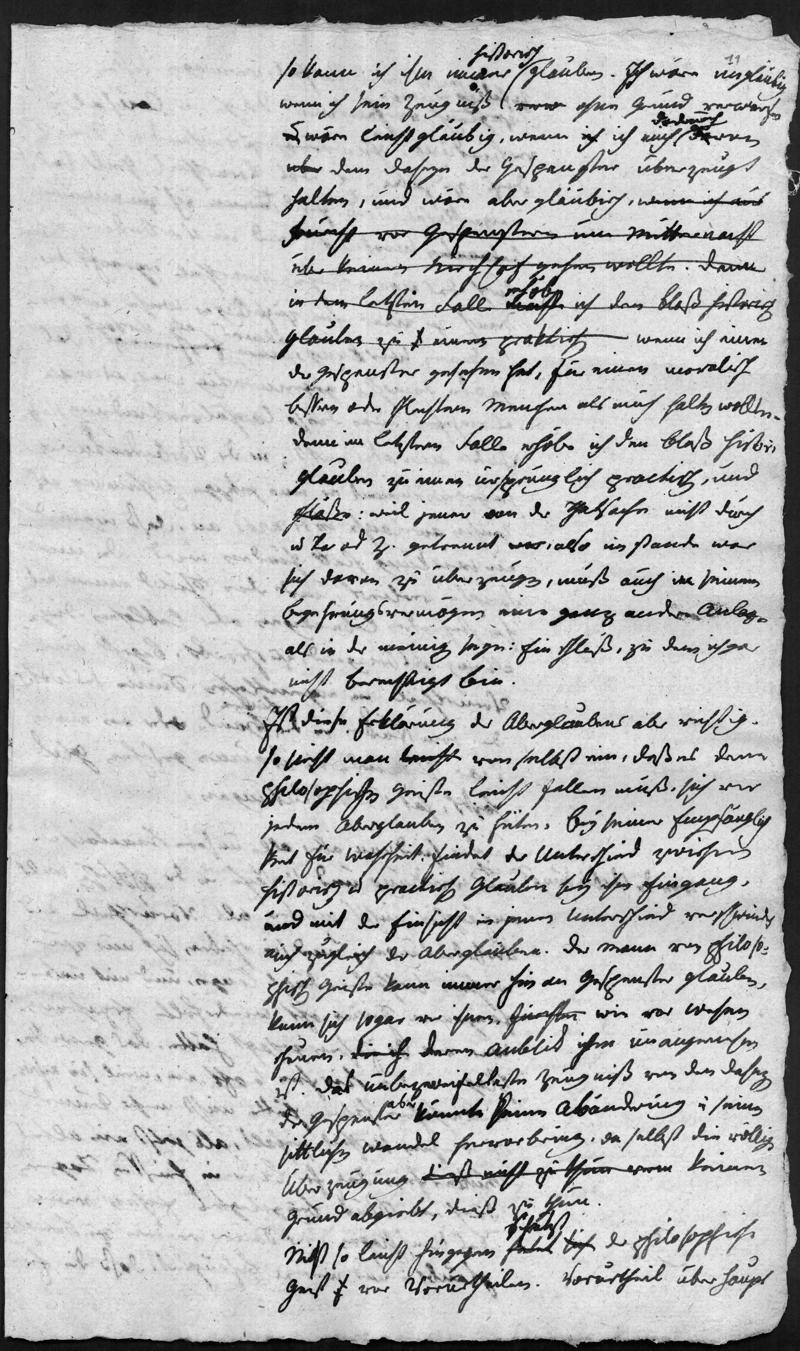 11
historisch
so kann ich ihm immer glauben. Ich wäre ungläubig
wenn ich sein Zeugniß ohne Grund verwerfen
wäre leichtgläubig, wenn ich mich dadurch
dem Daseyn der Gespenster überzeugt
halten, und wäre abergläubisch, wenn ich aus
Furcht vor Gespenstern um Mitternacht
über keinen Kirchhof gehen wollte. Denn
in dem letzten Fall erhöbe ich den bloß historisch
Glauben zu einem praktisch wenn ich einen
der Gespenster gesehen hat, für einen moralisch
bessern oder schlechtern Menschen als mich halten wollte.
denn im letztern Falle erhöbe ich den bloß histor.
Glauben zu einem ursprünglich practisch, und
schlöße: weil jener von der Thatsache nicht durch
getrennt im stande war
sich davon zu überzeugen, muß auch in seinem
Begehrungsvermögen eine ganz andere Anlage
als in der meinig seyn: Ein Schluß, zu dem ich gar
nicht berechtigt bin.
Ist diese Erklärung des Aberglaubens aber richtig.
so sieht man leicht von selbst ein, daß es dem
philosophischen Geiste leicht fallen muß, sich vor
jedem Aberglauben zu hüten. Bey seiner Empfänglich
keit für Wahrheit findet der Unterschied zwischen
historisch u practisch Glauben bey ihm Eingang,
und mit der Einsicht in jenen Unterschied verschwindet
auch zugleich der Aberglauben. Der Mann von philoso-
phisch Geiste kann immer hin an Gespenster glauben,
kann sich sogar vor ihnen fürchten wie vor Wesen
deren Anblick ihm unangenehm
ist. Das unbezweifelteste Zeugniß von dem Daseyn
der Gespenster aber könnte keine Abändrung in seinem
sittlichen Wandel hervorbring. da selbst die völlige
Überzeugung dieß nicht zu thun keinen
Grund abgiebt, dieß zu thun.
schützt
Nicht so leicht hingegen sich der philosophische
Geist vor Vorurtheilen. Vorurtheil überhaupt